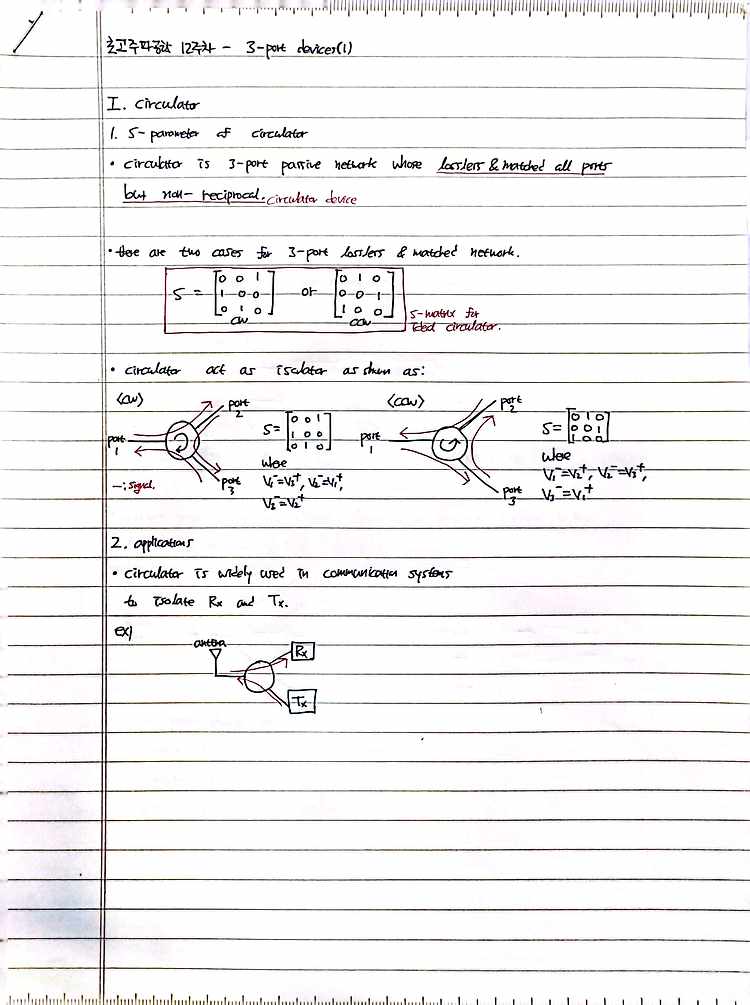 초고주파공학 12주차 - 3-port devices(1)
I. circulator
1. S-parameter of circulator
• circulator is 3-port passive network whose lossless & matched all ports
but non-reciprocal. circulator device
• there are two cases for 3-port lossless & matched network.
S = [0 0 1
1 0 0
0 1 0] or [0 1 0
0 0 1
1 0 0]
CW CCW
S-matrix for
ideal circulator.
• circulator act as isolator as shown as:
<CW>
port 1
port 2
port 3
—: signal.
S = [0 0 1
1 0 0
0 1 0]
where
V₁⁻=V₃⁺, V₂⁻=V₁⁺,
V₃⁻=V₂⁺
<CCW>
port 1
port 2
port 3
S = [0 1 0
0 0 1
1 0 0]
where
V₁⁻=V₂⁺, V₂⁻=V₃⁺,
V₃⁻=V₁⁺
2. applications
• circulator is widely used in communication systems
to isolate Rx and Tx.
ex)
antenna
Rx
Tx